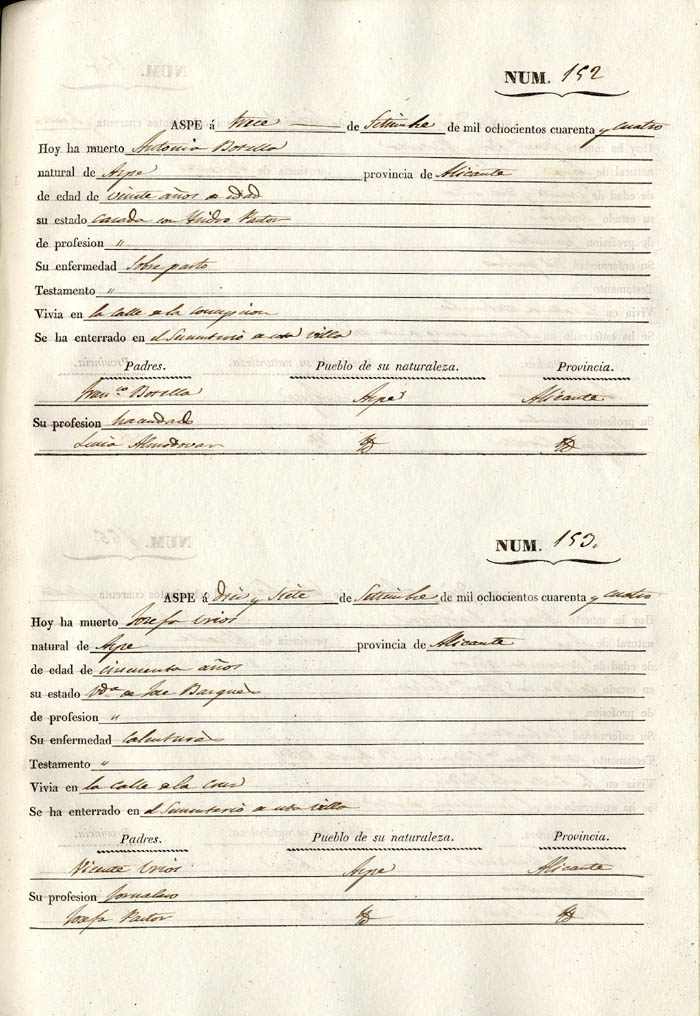 NUM. 152
ASPE á trece de Setiembre de mil ochocientos cuarenta y cuatro
Hoy ha muerto Antonia Botella
natural de Aspe provincia de Alicante
de edad de veinte años de edad
su estado casada con Ysidro Pastor
de profesion "
Su enfermedad Sobre parto
Testamento "
Vivia en la calle de la Concepcion
Se ha enterrado en el Sementerio de esta villa
Padres. Pueblo de su naturaleza. Provincia.
Franco Botella Aspe Alicante
Su profesion
Lucia Almodovar
NUM. 153.
ASPE á Dies y Siete de Setiembre de mil ochocientos cuarenta y cuatro
Hoy ha muerto Josefa Urios
natural de Aspe provincia de Alicante
de edad de cincuenta años
su estado Vda de Jose
de profesion "
Su enfermedad Calenturas
Testamento "
Vivia en la calle de la Cruz
Se ha enterrado en el Sementerio de esta villa
Padres. Pueblo de su naturaleza. Provincia.
Vicente Urios Aspe Alicante
Su profesion Jornalero
Josefa Pastor